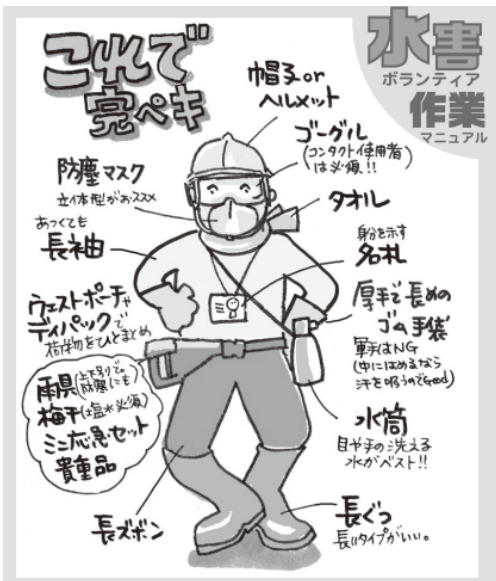 これで
完ペキ
水害
ボランティア
作業
マニュアル
帽子or
ヘルメット
ゴーグル
(コンタクト使用者
は必須!!)
防塵マスク
立体型がおススメ
タオル
あつくても
長袖
身分を示す
名札
ウェストポーチや
ディパックで
荷物をひとまとめ
厚手で長めの
ゴム手袋
軍手はNG
(中にはめるなら
汗を吸うのでGood)
雨具(上下別りで。
防寒にも)
梅干(塩水必須)
ミニ応急セット
貴重品
水筒
目や手の洗える
水がベスト!!
長ズボン
長ぐつ
長いタイプがいい。